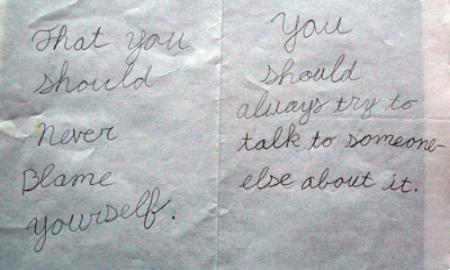 That you
should
never
Blame
yourself.
You
should
always try to
talk to someone
else about it.